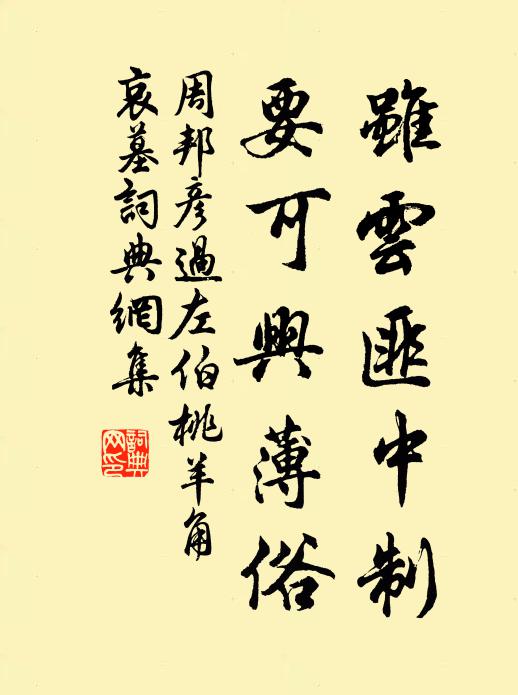 雖雲匪中制
要可興薄俗
周邦彥過左伯桃羊角
哀墓詞典網集
詞典網印